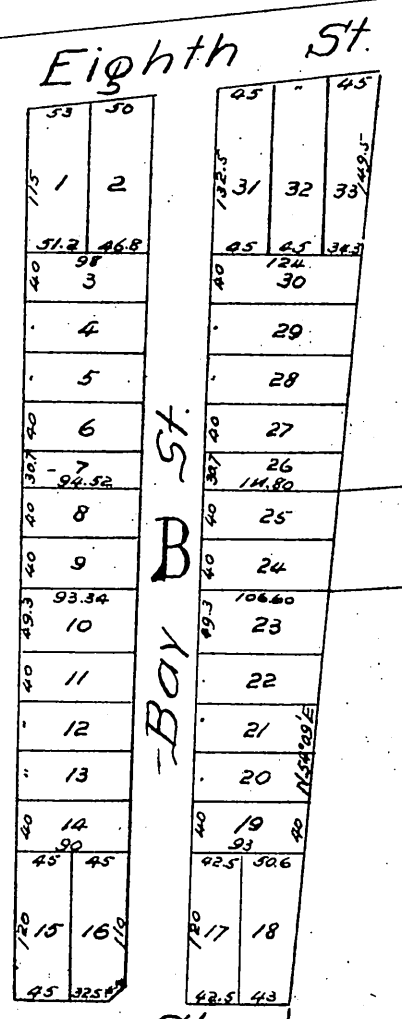 Eighth St.
53 50
115 1 2
51.2 46.8
98
40 3
4
5
40 6
30.7 7
94.52
40 8
40 9
93.34
49.3 10
40 11
" 12
" 13
40 14
90
45 45
120 15 16 110
45 32.5
Bay St.
B
45 " 45
132.5 31 32 33 149.5
45 45 34.3
124
40 30
29
28
40 27
30.7 26
40 25
40 24
106.60
49.3 23
22
21
20
N54°09'E
40 19 40
93
42.5 50.6
120 17 18
42.5 43